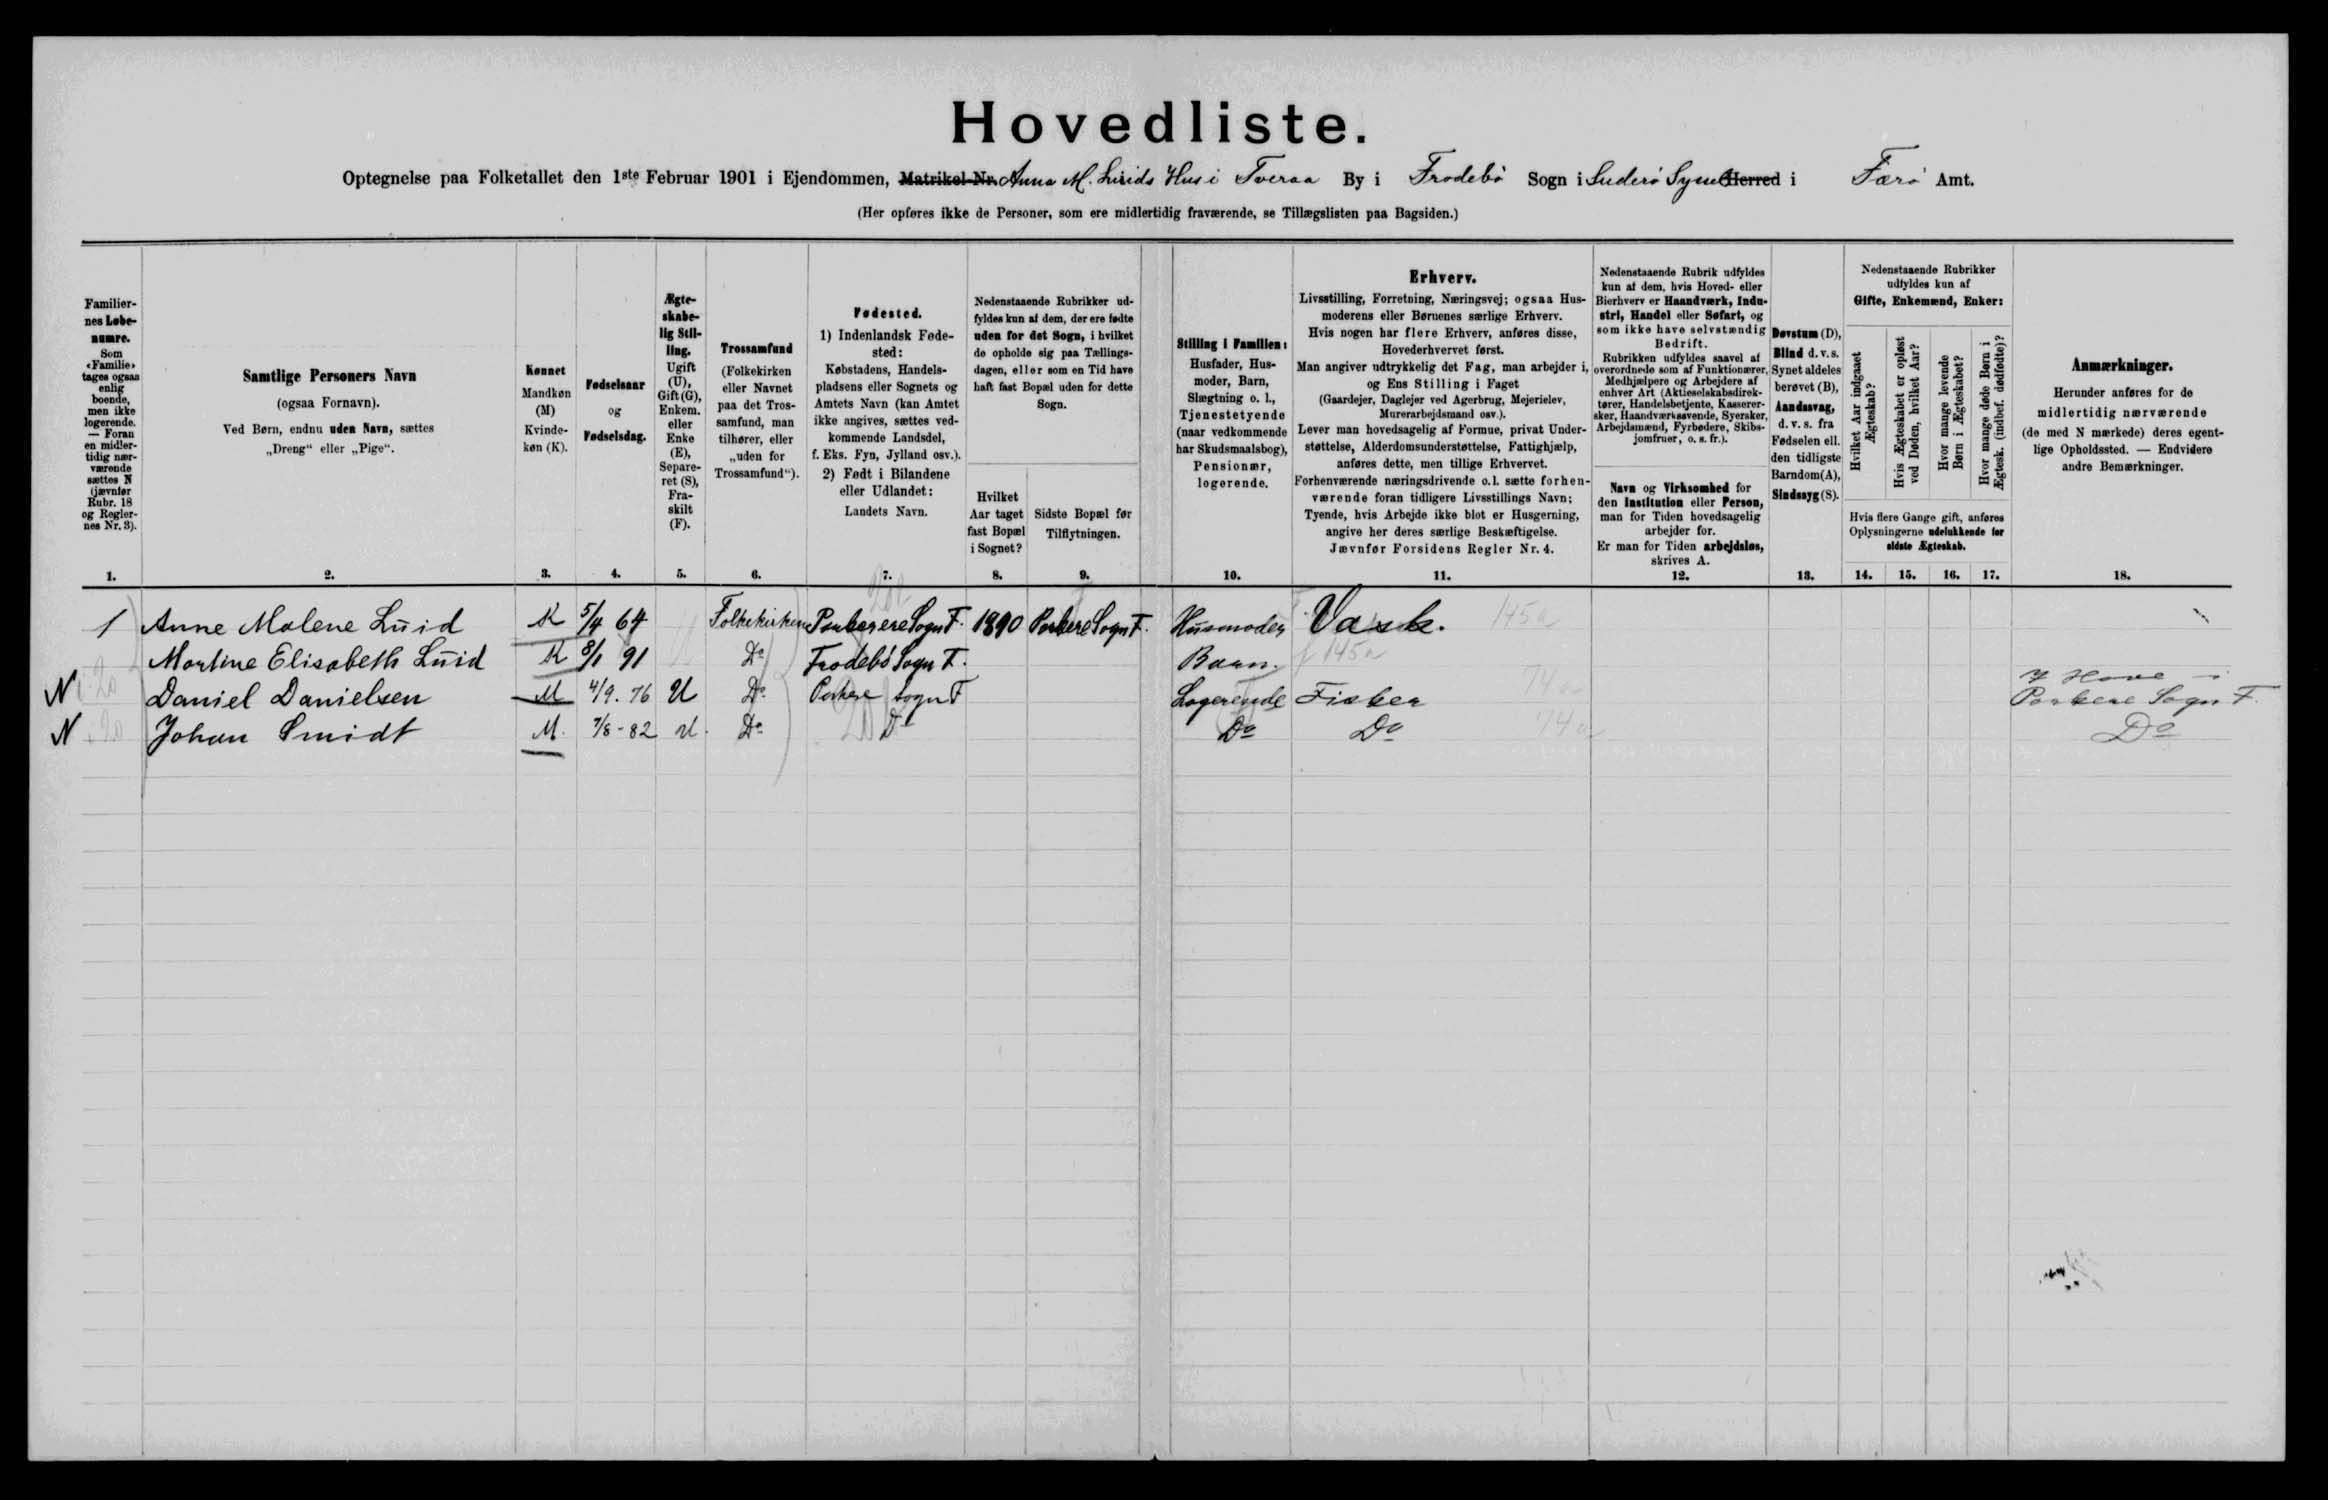 Hovedliste.
Optegnelse paa Folketallet den 1ste Februar 1901 i Ejendommen, Matrikel-Nr. Anna M. Luids Hus i Tveraa By i Frodebø Sogn i Suderø Syssel Herred i Færø Amt.
(Her opføres ikke de Personer, som ere midlertidig fraværende, se Tillægslisten paa Bagsiden.)
Familier-
nes Løbe-
numre.
Som
«Familie»
tages ogsaa
enlig
boende,
men ikke
logerende.
— Foran
en midler-
tidig nær-
værende
sættes N
(jævnfør
Rubr. 18
og Regler-
nes Nr. 3).
1.
Samtlige Personers Navn
(ogsaa Fornavn).
Ved Børn, endnu uden Navn, sættes
„Dreng“ eller „Pige“.
2.
Kønnet
Mandkøn
(M)
Kvinde-
køn (K).
3.
Fødselsaar
og
Fødselsdag.
4.
Ægte-
skabe-
lig Stil-
ling.
Ugift
(U),
Gift (G),
Enkem.
eller
Enke
(E),
Separe-
ret (S),
Fra-
skilt
(F).
5.
Trossamfund
(Folkekirken
eller Navnet
paa det Tros-
samfund, man
tilhører, eller
„uden for
Trossamfund“).
6.
Fødested.
1) Indenlandsk Føde-
sted:
Købstadens, Handels-
pladsens eller Sognets og
Amtets Navn (kan Amtet
ikke angives, sættes ved-
kommende Landsdel,
f. Eks. Fyn, Jylland osv.).
2) Født i Bilandene
eller Udlandet:
Landets Navn.
7.
Nedenstaaende Rubrikker ud-
fyldes kun af dem, der ere fødte
uden for det Sogn, i hvilket
de opholde sig paa Tællings-
dagen, eller som en Tid have
haft fast Bopæl uden for dette
Sogn.
Hvilket
Aar taget
fast Bopæl
i Sognet?
8.
Sidste Bopæl før
Tilflytningen.
9.
Stilling i Familien:
Husfader, Hus-
moder, Barn,
Slægtning o. l.,
Tjenestetyende
(naar vedkommende
har Skudsmaalsbog),
Pensionær,
logerende.
10.
Erhverv.
Livsstilling, Forretning, Næringsvej; ogsaa Hus-
moderens eller Børnenes særlige Erhverv.
Hvis nogen har flere Erhverv, anføres disse,
Hovederhvervet først.
Man angiver udtrykkelig det Fag, man arbejder i,
og Ens Stilling i Faget
(Gaardejer, Daglejer ved Agerbrug, Mejerielev,
Murerarbejdsmand osv.).
Lever man hovedsagelig af Formue, privat Under-
støttelse, Alderdomsunderstøttelse, Fattighjælp,
anføres dette, men tillige Erhvervet.
Forhenværende næringsdrivende o. l. sætte forhen-
værende foran tidligere Livsstillings Navn;
Tyende, hvis Arbejde ikke blot er Husgerning,
angive her deres særlige Beskæftigelse.
Jævnfør Forsidens Regler Nr. 4.
11.
Nedenstaaende Rubrik udfyldes
kun af dem, hvis Hoved- eller
Bierhverv er Haandværk, Indu-
stri, Handel eller Søfart, og
som ikke have selvstændig
Bedrift.
Rubrikken udfyldes saavel af
overordnede som af Funktionærer,
Medhjælpere og Arbejdere af
enhver Art (Aktieselskabsdirek-
tører, Handelsbetjente, Kasserer-
sker, Haandværkssvende, Syersker,
Arbejdsmænd, Fyrbødere, Skibs-
jomfruer, o. s. fr.).
Navn og Virksomhed for
den Institution eller Person,
man for Tiden hovedsagelig
arbejder for.
Er man for Tiden arbejdsløs,
skrives A.
12.
Døvstum (D),
Blind d. v. s.
Synet aldeles
berøvet (B),
Aandssvag,
d. v. s. fra
Fødselen ell.
den tidligste
Barndom (A),
Sindssyg (S).
13.
Nedenstaaende Rubrikker
udfyldes kun af
Gifte, Enkemænd, Enker:
Hvilket Aar indgaaet
Ægteskab?
Hvis Ægteskabet er opløst
ved Døden, hvilket Aar?
Hvor mange levende
Børn i Ægteskabet?
Hvor mange døde Børn i
Ægtesk. (indbef. dødfødte)?
Hvis flere Gange gift, anføres
Oplysningerne udelukkende for
sidste Ægteskab.
14. 15. 16. 17.
Anmærkninger.
Herunder anføres for de
midlertidig nærværende
(de med N mærkede) deres egent-
lige Opholdssted. — Endvidere
andre Bemærkninger.
18.
1 Anne Malene Luid K 5/4 64 Folkekirken Porkere Sogn F. 1890 Porkere Sogn F. Husmoder Vask. 145a
Martine Elisabeth Luid K 8/1 91 Do Frodebø Sogn F. Barn. 145a
N Daniel Danielsen M 4/9. 76 U Do Porkere Sogn F Logerende Fisker 74a I Hove i Porkere Sogn F.
N Johan Smidt M. 7/8-82 U. Do Do Do Do 74a Do